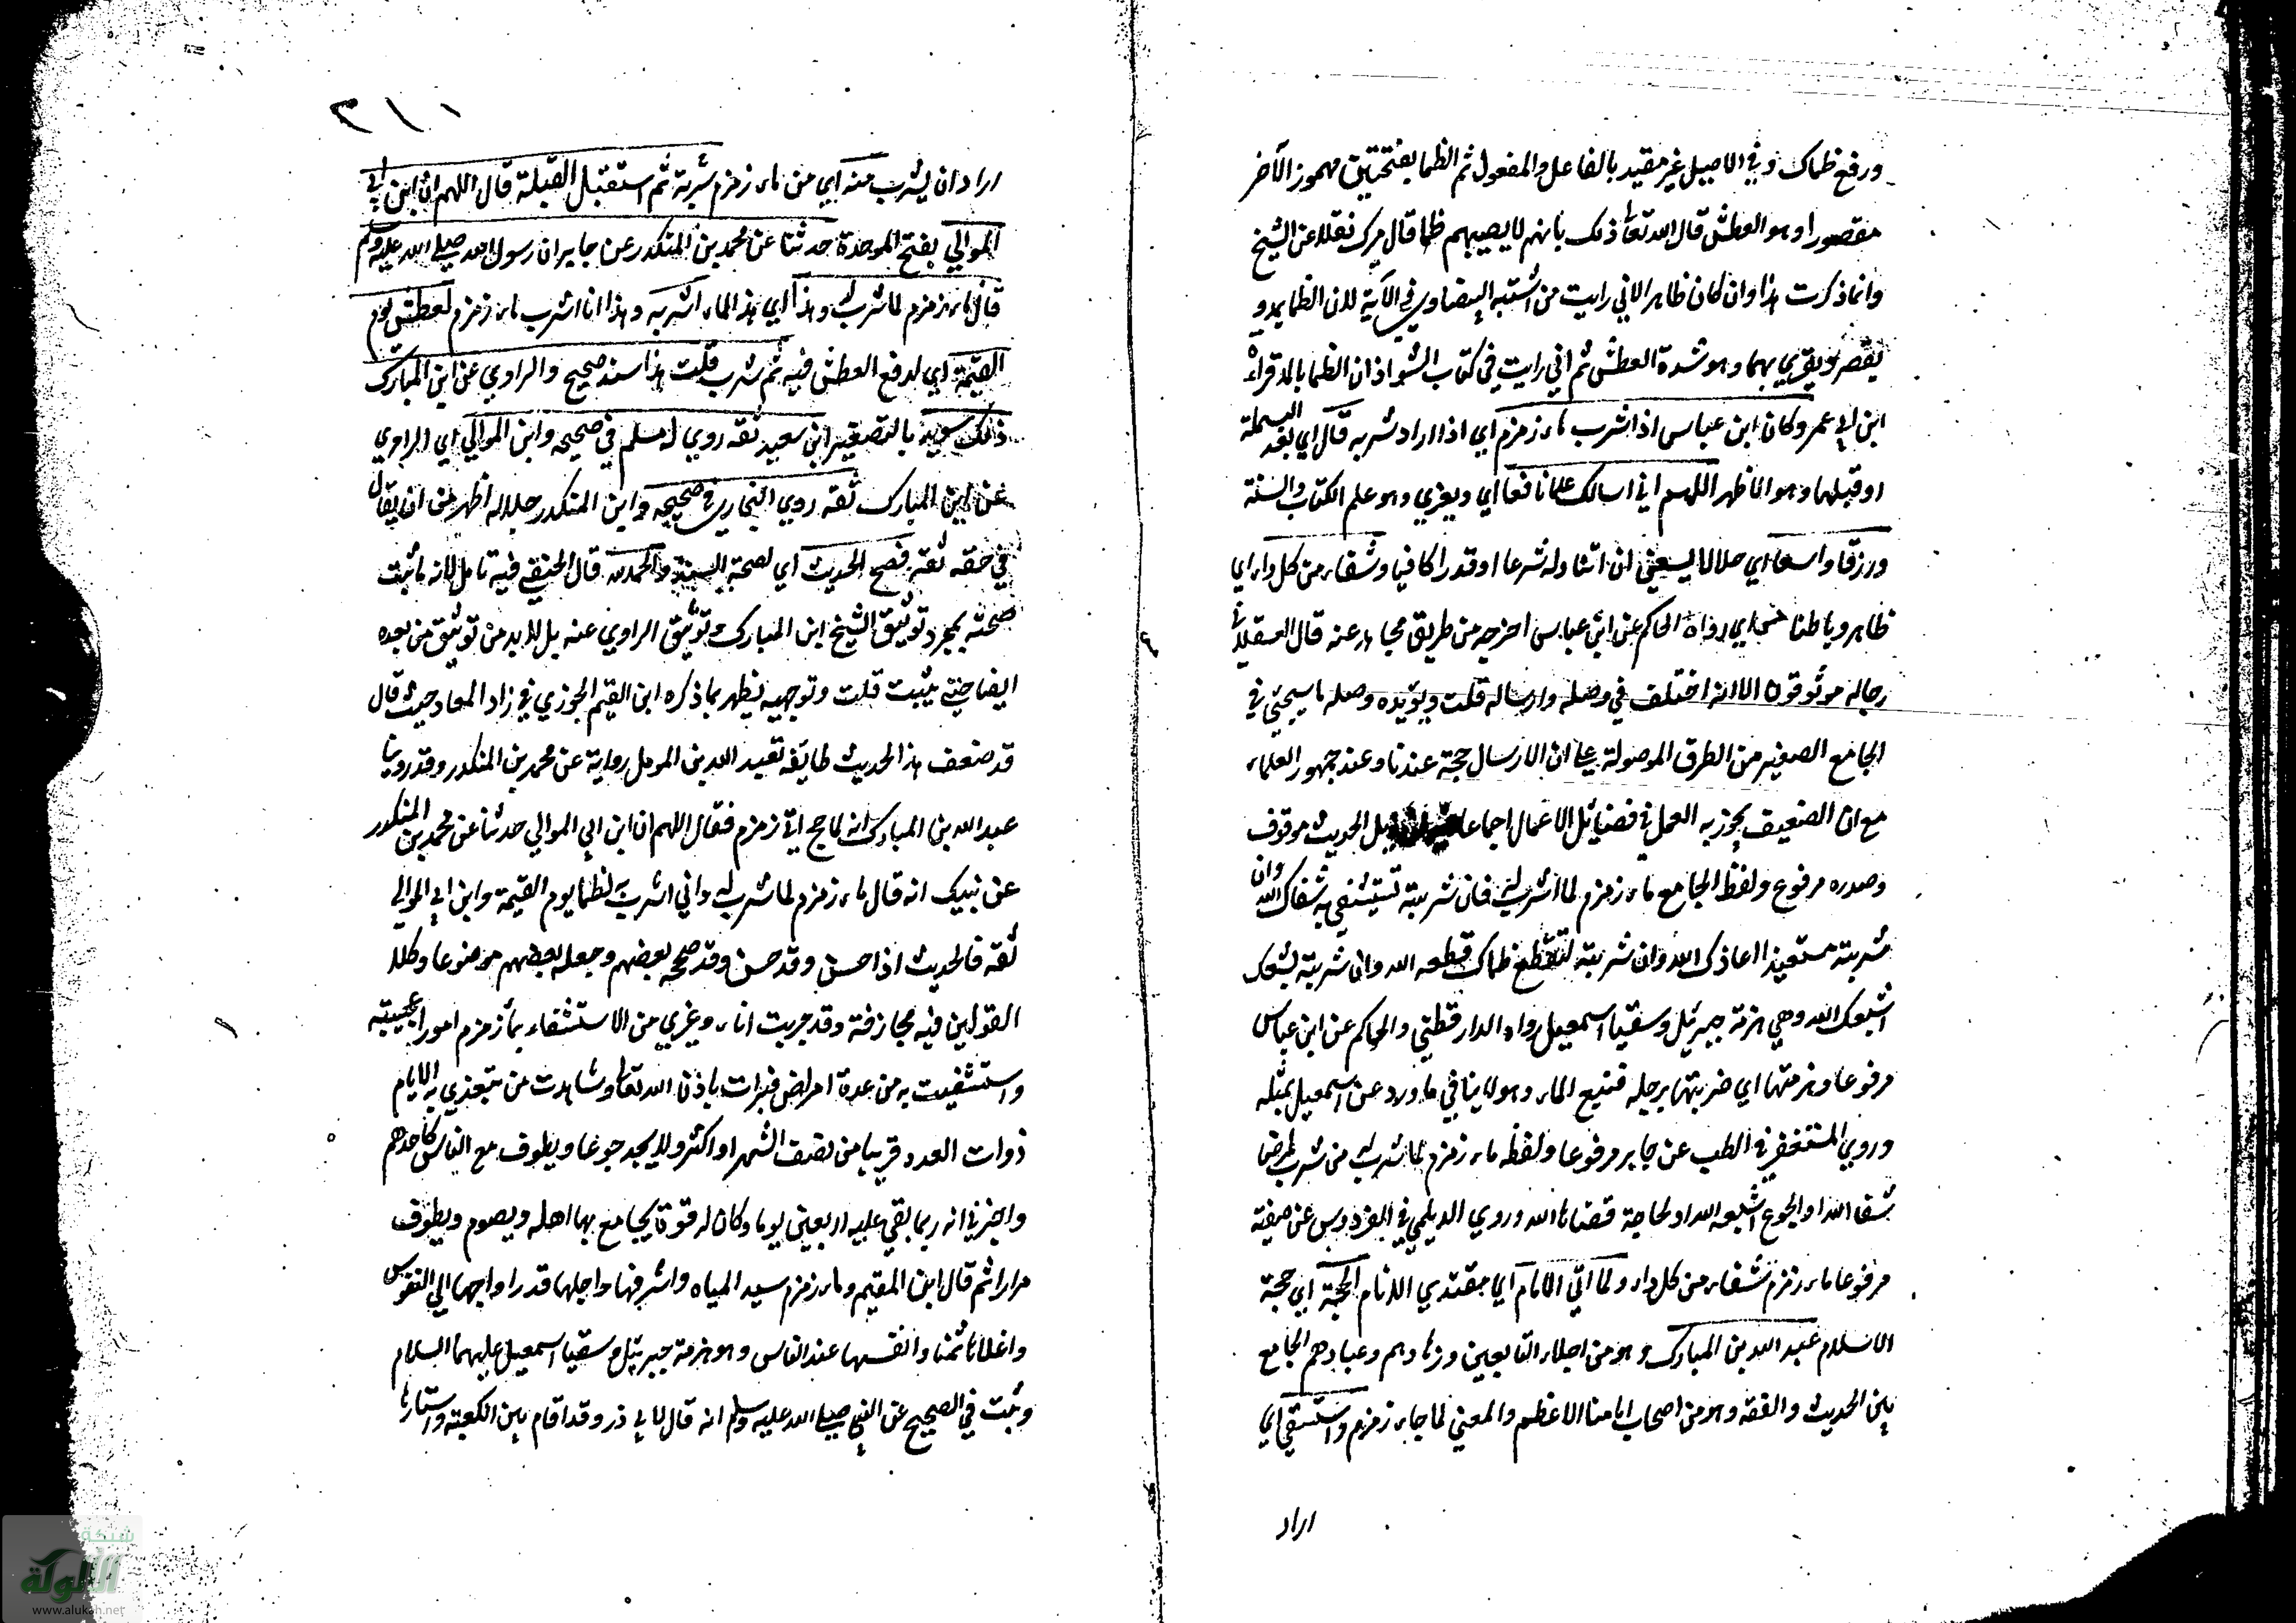 ورفع ظماك وفي الاصيل غير مقيد بالفاعل والمفعول ثم الظما بفتحتين مهموز الآخر
مقصورا وهو العطش قال الله تعا ذلك بانهم لا يصيبهم ظما قال ميرك نقلا عن الشيخ
وانما ذكرت هذا وان كان ظاهرا لاني رايت من اشتبه البيضاوي في الآية لان الظما يمد و
يقصر ويقري بهما وهو شدة العطش ثم اني رايت في كتاب الشواذ ان الظما بالمد قراة
ابن ابي عمر وكان ابن عباس اذا شرب ماء زمزم اي اذا اراد شربه قال اي بعد البسملة
او قبلها وهو الاظهر اللهم اني اسالك علما نافعا اي ويعزي وهو علم الكتاب والسنة
ورزقا واسعا اي حلالا يسعني ان اتناوله شرعا او قدرا كافيا وشفاء من كل داء اي
ظاهر وباطنا اي رواه الحاكم عن ابن عباس اخرجه من طريق مجاهد عنه قال العسقلاني
رجاله موثوقون الا انه اختلف في وصله وارساله قلت ويؤيده وصله ما سيجيئ في
الجامع الصغير من الطرق الموصولة علي ان الارسال حجة عندنا وعند جمهور العلماء
مع ان الضعيف يجوز به العمل في فضائل الاعمال اجماعا بل الحديث موقوف
وصدره مرفوع ولفظ الجامع ماء زمزم لما شرب له فان شربته تستشفي به شفاك الله وان
شربته مستعيذا اعاذك الله وان شربته لتقطع ظماك قطعه الله وان شربته لشبعك
اشبعك الله وهي هزمة جبرئل وسقيا اسمعيل رواه الدارقطني والحاكم عن ابن عباس
مرفوعا وهزمتها اي ضربتها برجله فنبع الماء وهو لا ينافي ما ورد عن اسمعيل بمثله
وروي المستغفري في الطب عن جابر مرفوعا ولفظه ماء زمزم لما شرب له من شرب لمرض
شفا الله او لجوع اشبعه الله او لحاجة قضاها الله وروي الديلمي في الفردوس عن صفية
مرفوعا ماء زمزم شفاء من كل داء ولما اتي الامام اي مقتدي الانام الحجة اي حجة
الاسلام عبد الله بن المبارك وهو من اجلاء التابعين وزهادهم وعبادهم الجامع
بين الحديث والفقه وهو من اصحاب امامنا الاعظم والمعني لما جاء زمزم واستسقي اي
اراد
٢١١
اراد ان يشرب منه اي من ماء زمزم شربة ثم استقبل القبلة قال اللهم ان ابن ابي
الموالي بفتح الموحدة حدثنا عن محمد بن المنكدر عن جابر ان رسول الله صلي الله عليه وسلم
قال ماء زمزم لما شرب له وهذا اي هذا الماء اشربه وهذا انا اشرب ماء زمزم لعطش يوم
القيمة اي لدفع العطش فيه ثم شرب قلت هذا سند صحيح والراوي عن ابن المبارك
ذلك سويد بالتصغير ابن سعيد ثقة روي له مسلم في صحيحه وابن الموالي اي الراوي
عن ابن المبارك ثقة روي البخاري في صحيحه وابن المنكدر جلاله اظهر من ان يقال
في حقه ثقة فصح الحديث اي لصحة السند والحمد لله قال الحنفي فيه تامل لانه ما ثبت
صحته بمجرد توثيق الشيخ ابن المبارك وتوثيق الراوي عنه بل لا بد من توثيق من بعده
ايضا حتي يثبت قلت وتوجيهه يظهر بما ذكره ابن القيم الجوزي في زاد المعاد حيث قال
قد ضعف هذا الحديث طائفة بعبد الله بن المومل رواية عن محمد بن المنكدر وقد روينا
عبد الله بن المبارك انه لما حج اتي زمزم فقال اللهم ان ابن ابي الموالي حدثنا عن محمد بن المنكدر
عن نبيك انه قال ماء زمزم لما شرب له واني اشربه لظما يوم القيمة وابن ابي الموالي
ثقة فالحديث اذا حسن وقد حسن وقد صححه بعضهم وجعله بعضهم موضوعا وكلا
القولين فيه مجازفة وقد جربت انا وغيري من الاستشفاء بماء زمزم امورا عجيبة
واستشفيت به من عدة امراض فبرات باذن الله تعا وشاهدت من يتغذي به الايام
ذوات العدد قريبا من نصف الشهر او اكثر ولا يجد جوعا ويطوف مع الناس كاحدهم
واخبرني انه ربما بقي عليه اربعين يوما وكان له قوة يجامع بها اهله ويصوم ويطوف
مرارا ثم قال ابن القيم وماء زمزم سيد المياه واشرفها واجلها قدرا واحبها الي النفوس
واغلاها ثمنا وانفسها عند الناس وهو هزمة جبرئيل وسقيا اسمعيل عليهما السلام
وثبت في الصحيح عن النبي صلي الله عليه وسلم انه قال لابي ذر وقد اقام بين الكعبة واستارها
شبكة
الألوكة
www.alukah.net